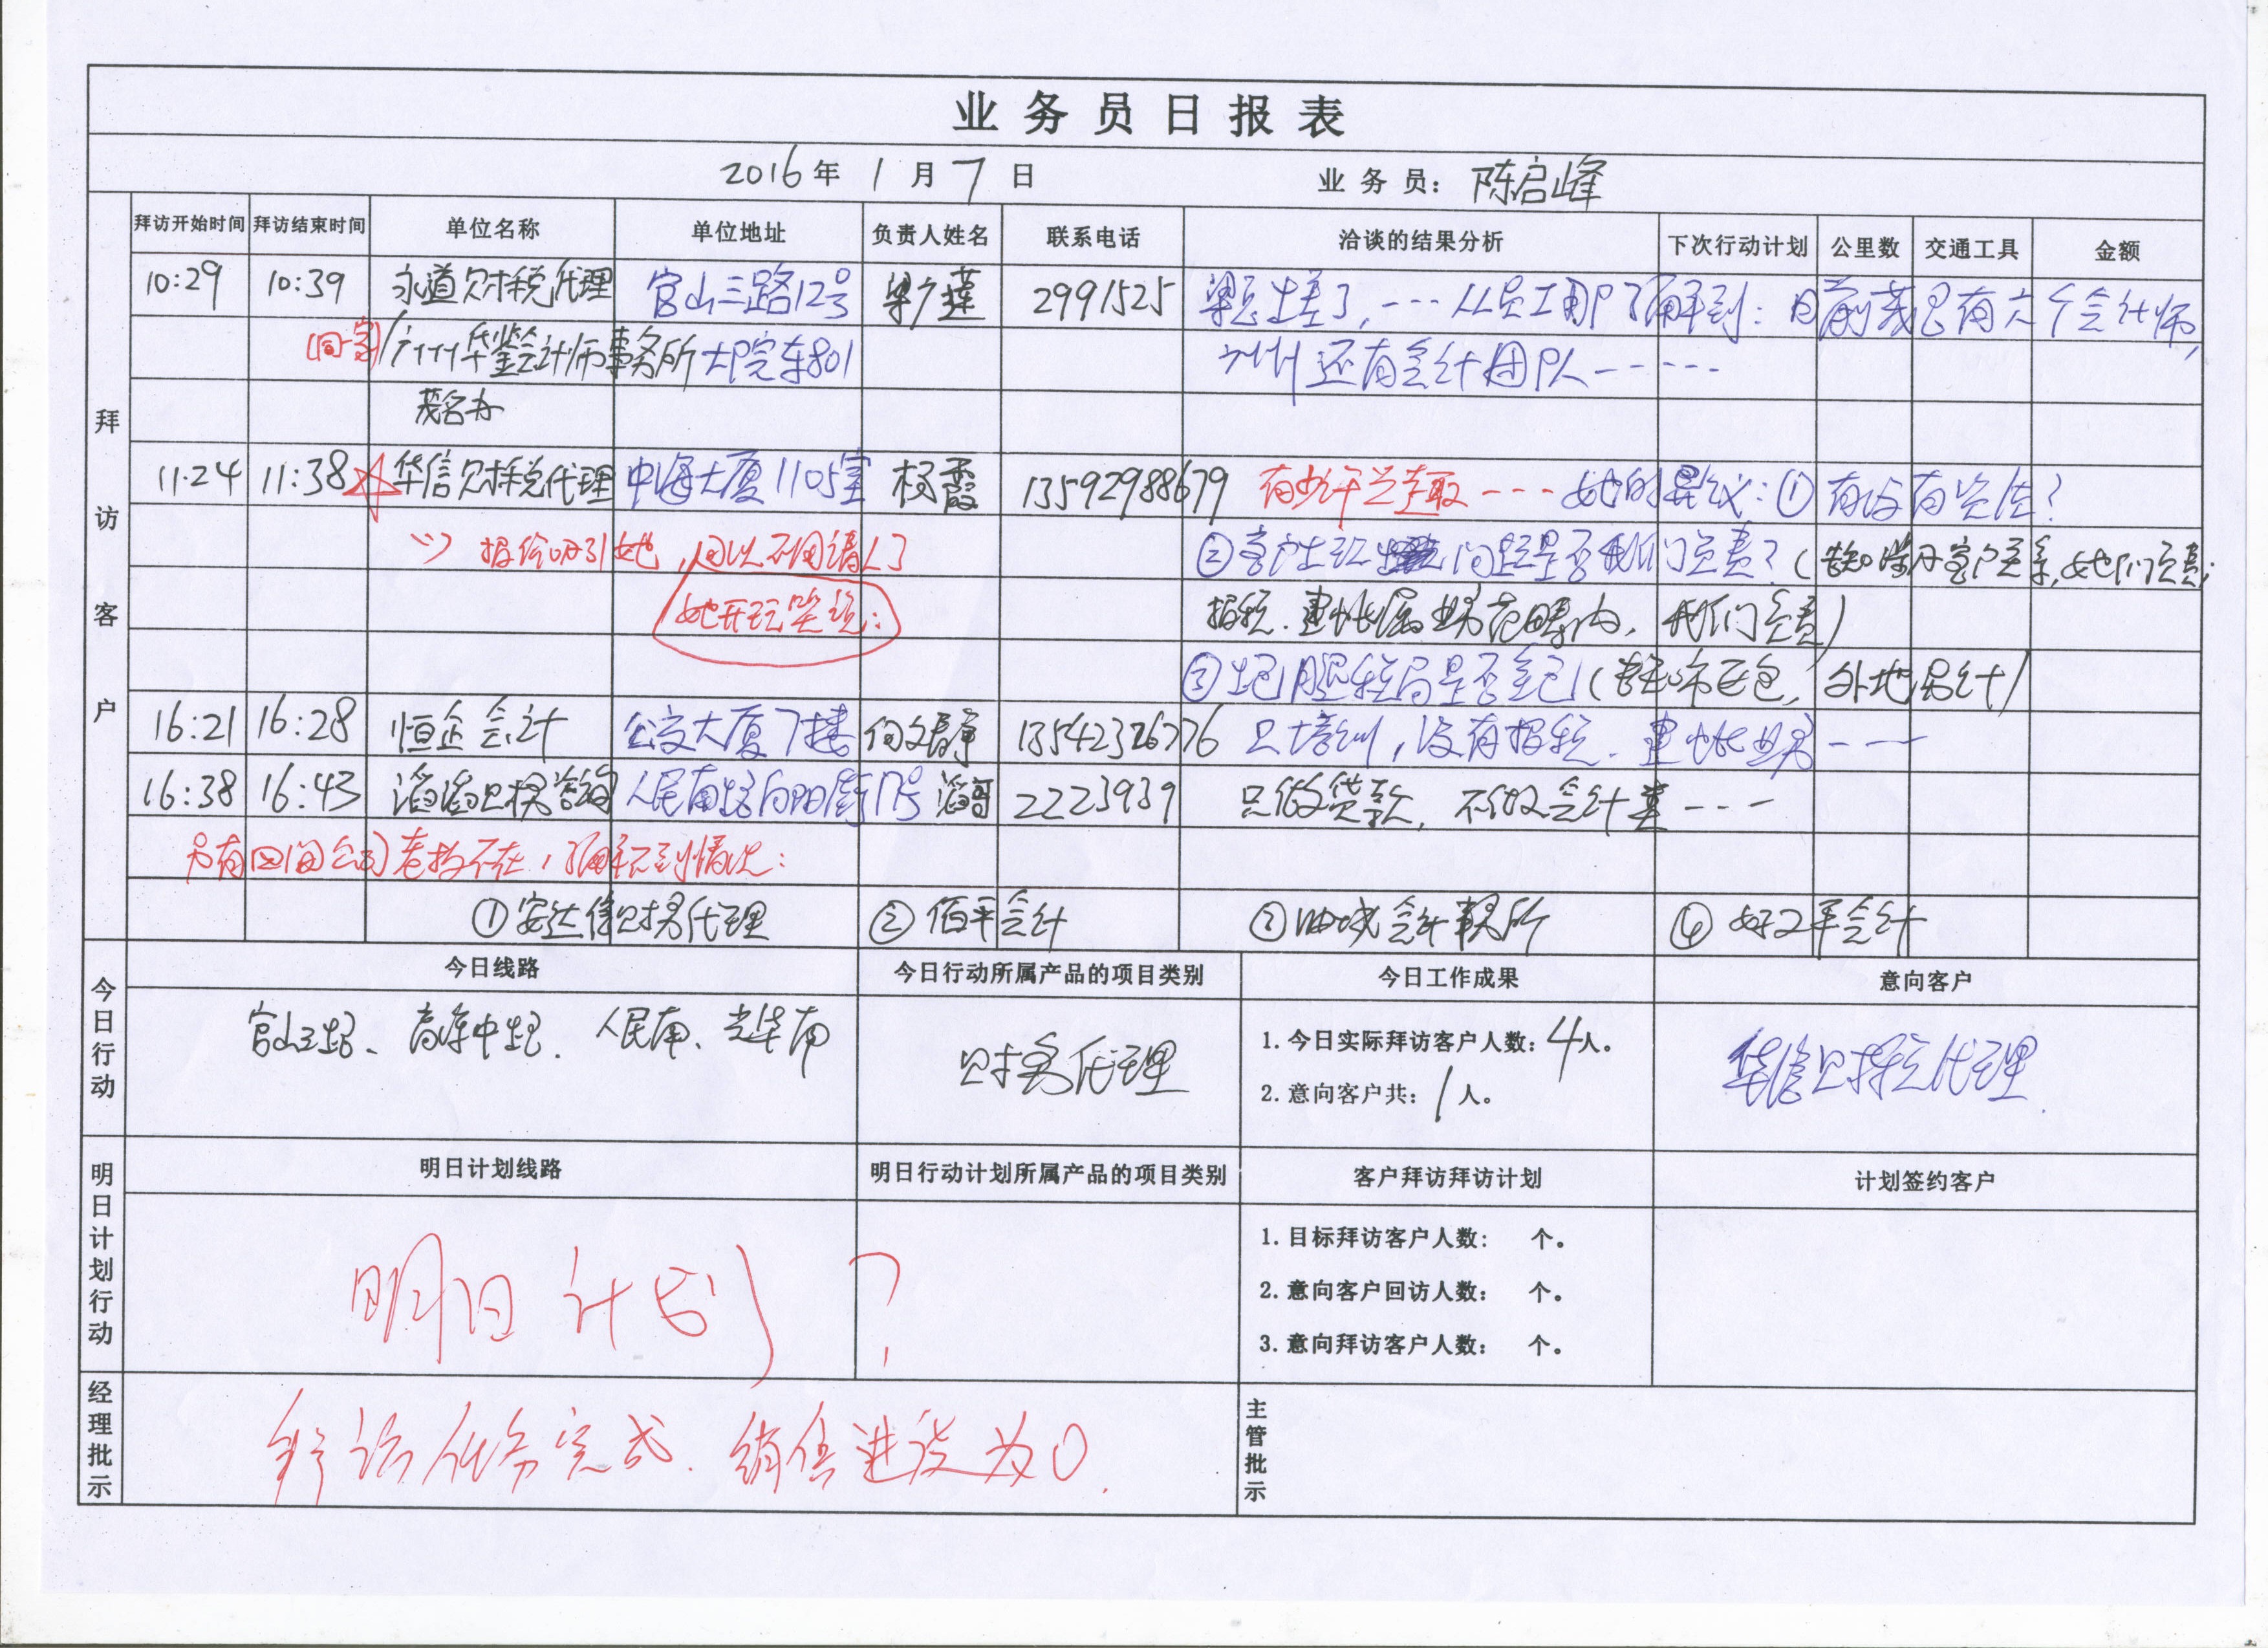 业务员日报表
2016年 1月 7日 业务员: 陈启峰
拜访客户
拜访开始时间 拜访结束时间 单位名称 单位地址 负责人姓名 联系电话 洽谈的结果分析 下次行动计划 公里数 交通工具 金额
10:29 10:39 永道财税代理 官山三路12号 梁广莲 2991525 梁总出差了,---从员工那了解到:目前茂名有六个会计师,
(同一家) 广州华鉴会计师事务所 大院东801 广州还有会计团队-----
茂名办
11:24 11:38 ☆ 华信财税代理 中海大厦1105室 杨霞 13592988679 有少许兴趣---她的异议:①有没有资质?
报价吸引她,可以不用请人了 ②客户出现 问题是否我们负责?(告知 客户关系,她们负责;
她开玩笑说: 报税、建帐属业务范畴内,我们负责)
③ 税局是否全包(市区包,外地另计)
16:21 16:28 恒企会计 公交大厦7楼 何文静 13542326776 只培训,没有报税、建帐业务---
16:38 16:43 滔滔财税咨询 人民南路向阳街17号 滔哥 2223939 只做贷款,不做会计类---
另有四间公司老板不在,了解不到情况:
①安达信财务代理 ②佰平会计 ③油城会计事务所 ④好又平会计
今日行动
今日线路 今日行动所属产品的项目类别 今日工作成果 意向客户
官山三路、高凉中路、人民南、光华南 财务代理 1.今日实际拜访客户人数:4人。 华信财税代理.
2.意向客户共:1人。
明日计划行动
明日计划线路 明日行动计划所属产品的项目类别 客户拜访拜访计划 计划签约客户
明日计划? 1.目标拜访客户人数: 个。
2.意向客户回访人数: 个。
3.意向拜访客户人数: 个。
经理批示 拜访任务完成.销售进度为0. 主管批示